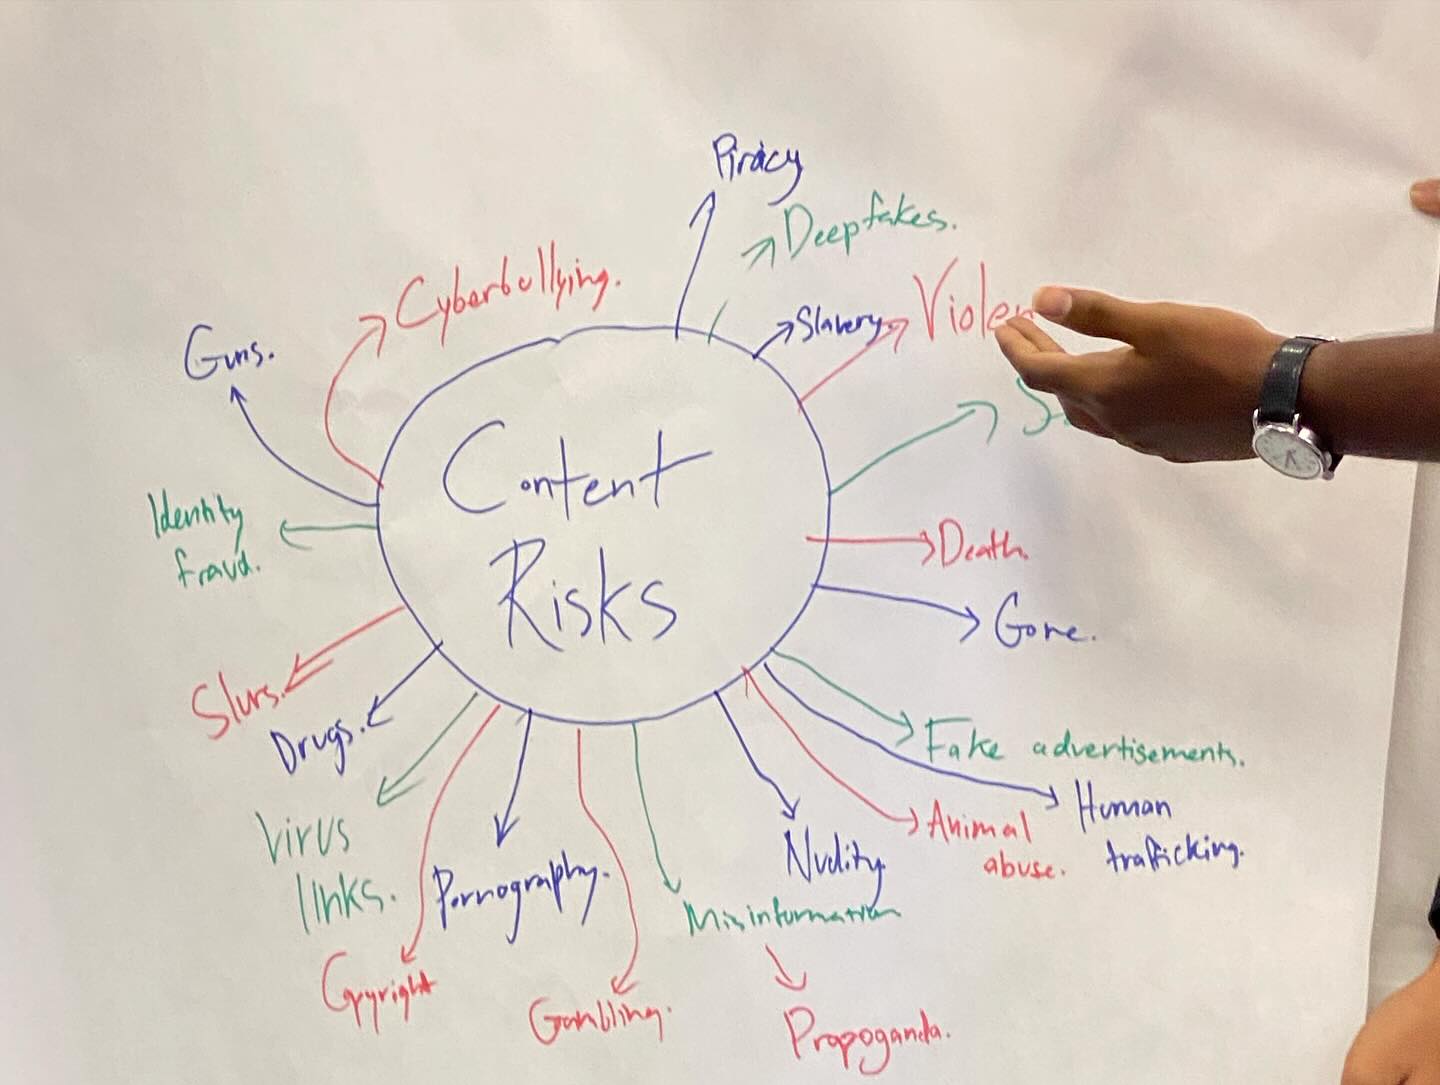 Piracy
Deepfakes.
Cyberbullying.
Slavery
Guns.
Content
Risks
Identity
fraud.
Death.
Gore.
Slurs.
Drugs.
Fake advertisements.
Human
trafficking.
Animal
abuse.
Virus
links.
Pornography.
Nudity
Misinformation
Copyright
Gambling.
Propoganda.